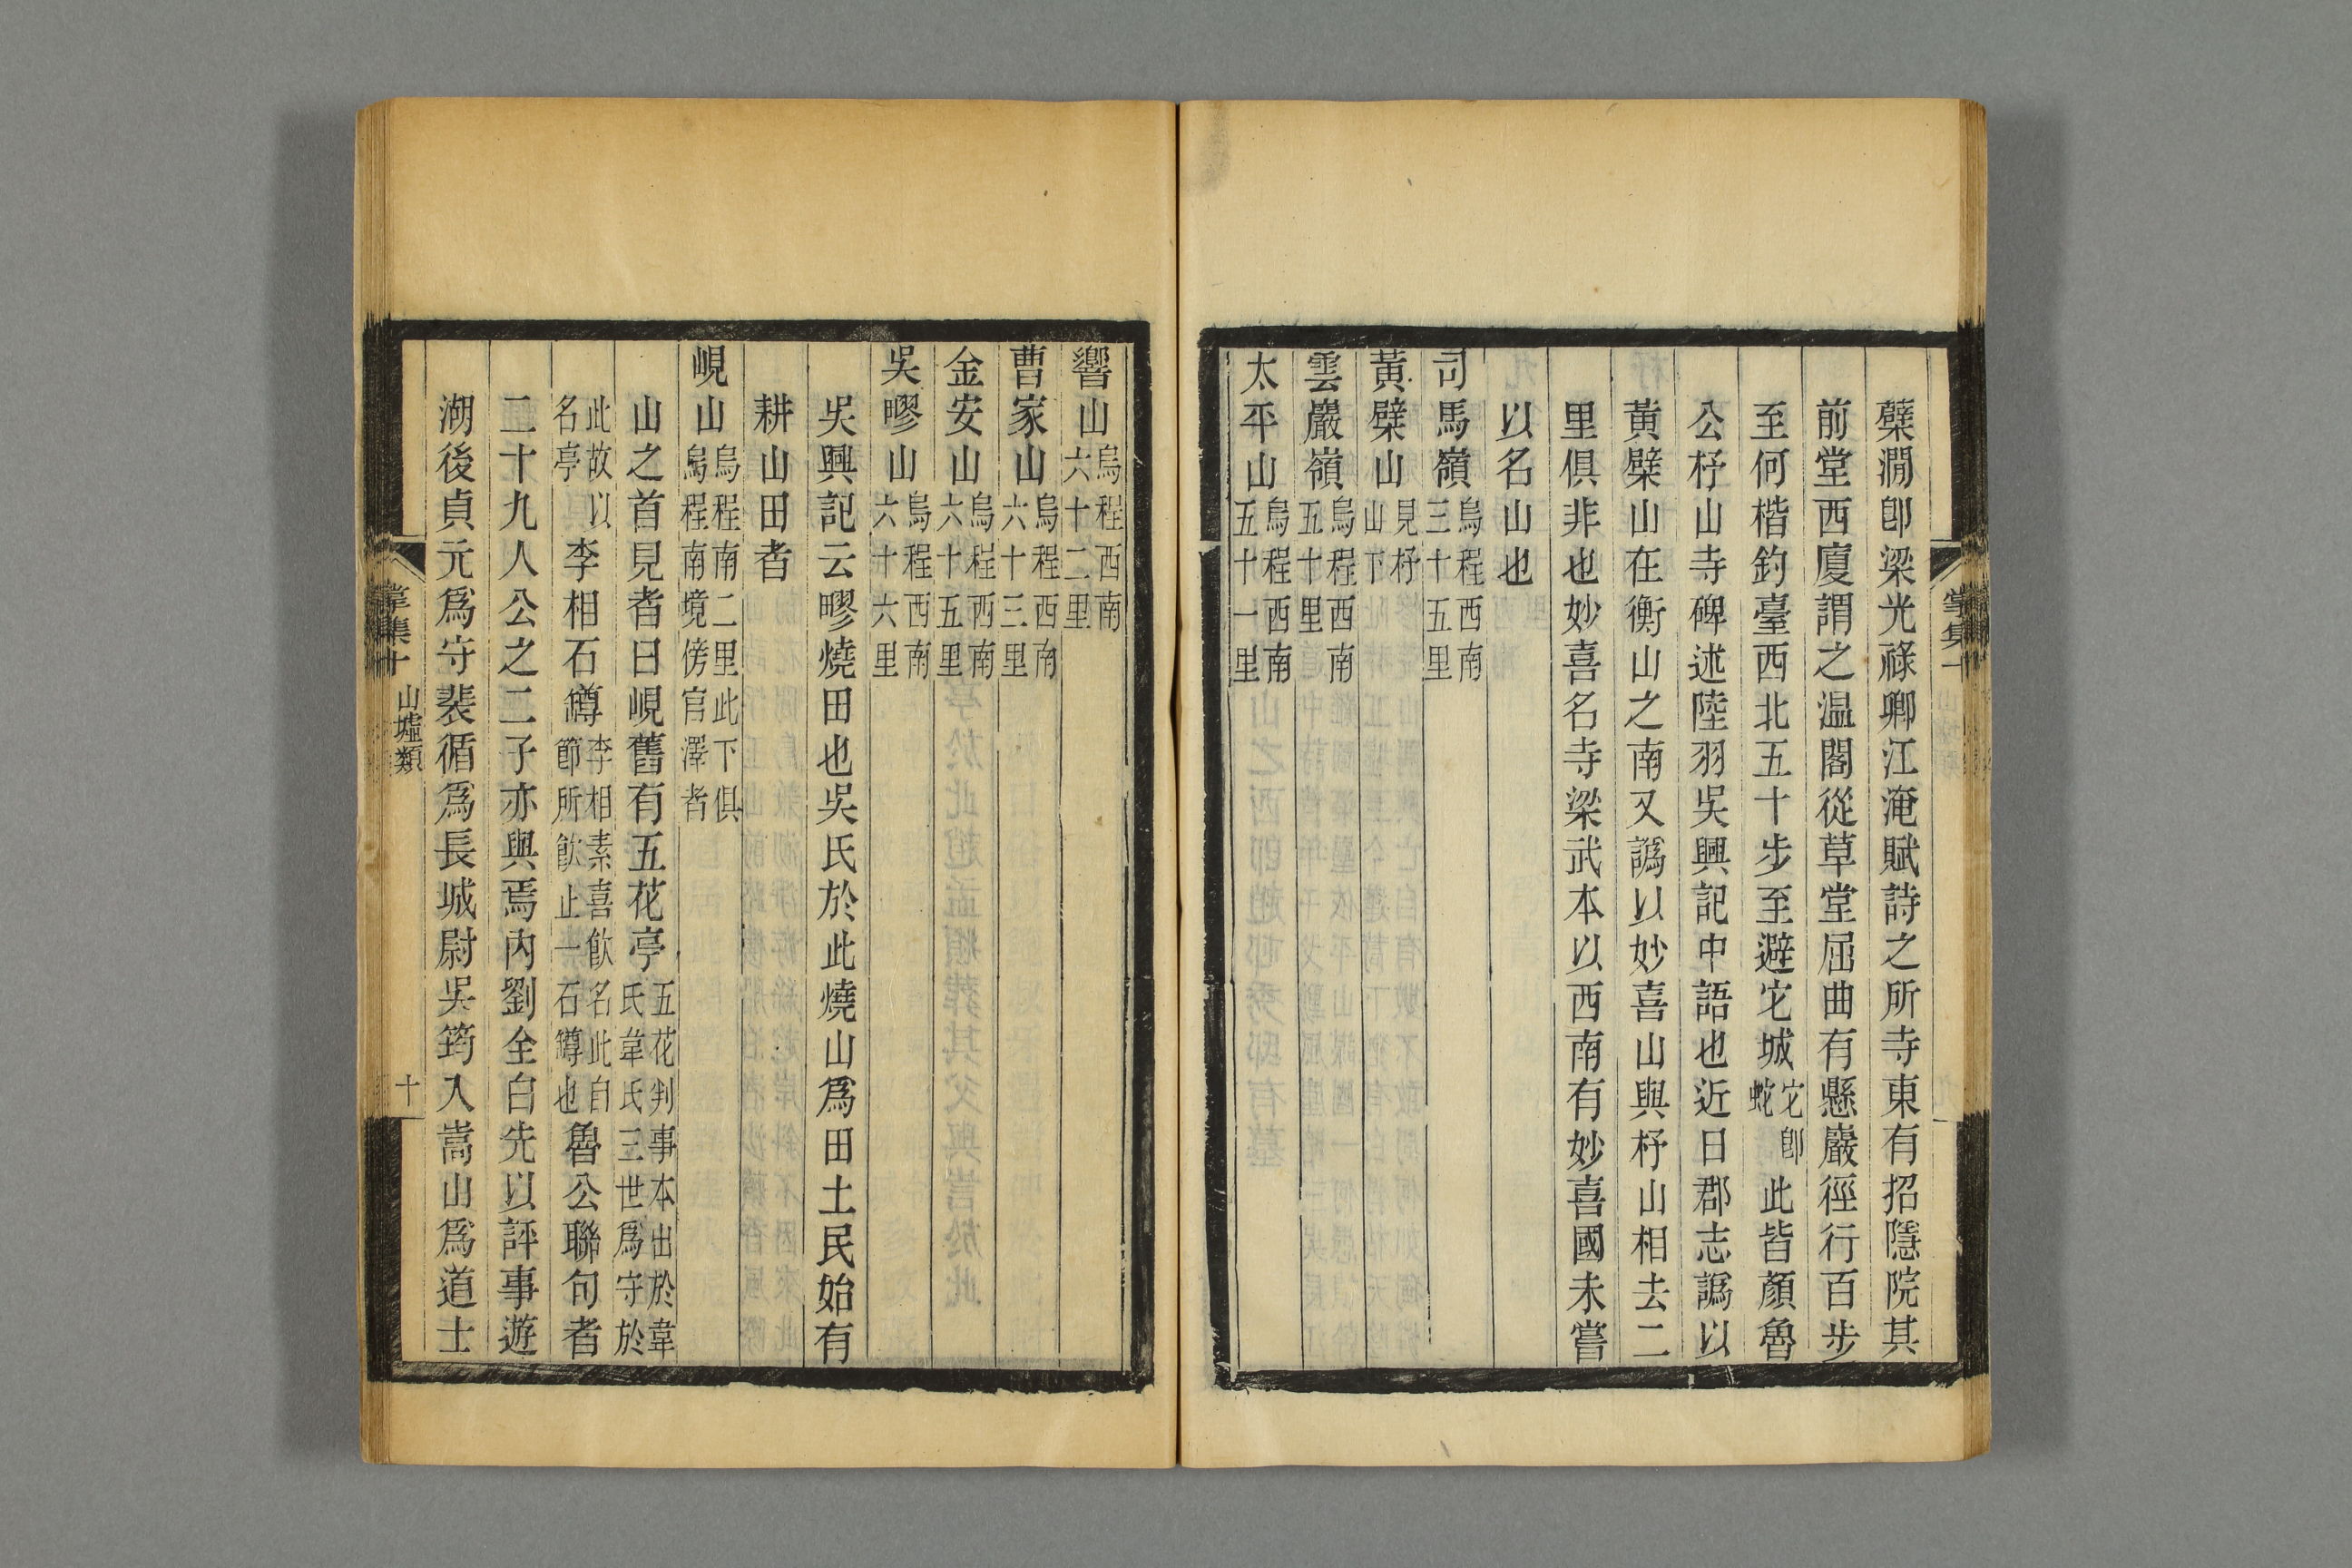 檗澗卽梁光祿卿江淹賦詩之所寺東有招隱院其
前堂西廈謂之温閣從草堂屈曲有懸巖徑行百步
至何楷釣臺西北五十步至避它城它卽蛇此皆顏魯
公杼山寺碑述陸羽吳興記中語也近日郡志譌以
黃檗山在衡山之南又譌以妙喜山與杼山相去二
里俱非也妙喜名寺梁武本以西南有妙喜國未嘗
以名山也
司馬嶺烏程西南三十五里
黃檗山見杼山下
雲巖嶺烏程西南五十里
太平山烏程西南五十一里
響山烏程西南六十二里
曹家山烏程西南六十三里
金安山烏程西南六十五里
吳疁山烏程西南六十六里
吳興記云疁燒田也吳氏於此燒山爲田土民始有
耕山田者
峴山烏程南二里此下俱烏程南境傍官澤者
山之首見者曰峴舊有五花亭五花判事本出於韋氏韋氏三世爲守於
此故以名亭李相石罇李相素喜飲名此自節所飲止一石罇也魯公聯句者
二十九人公之二子亦與焉內劉全白先以評事遊
湖後貞元爲守裴循爲長城尉吳筠入嵩山爲道士
掌集十 山墟類
十